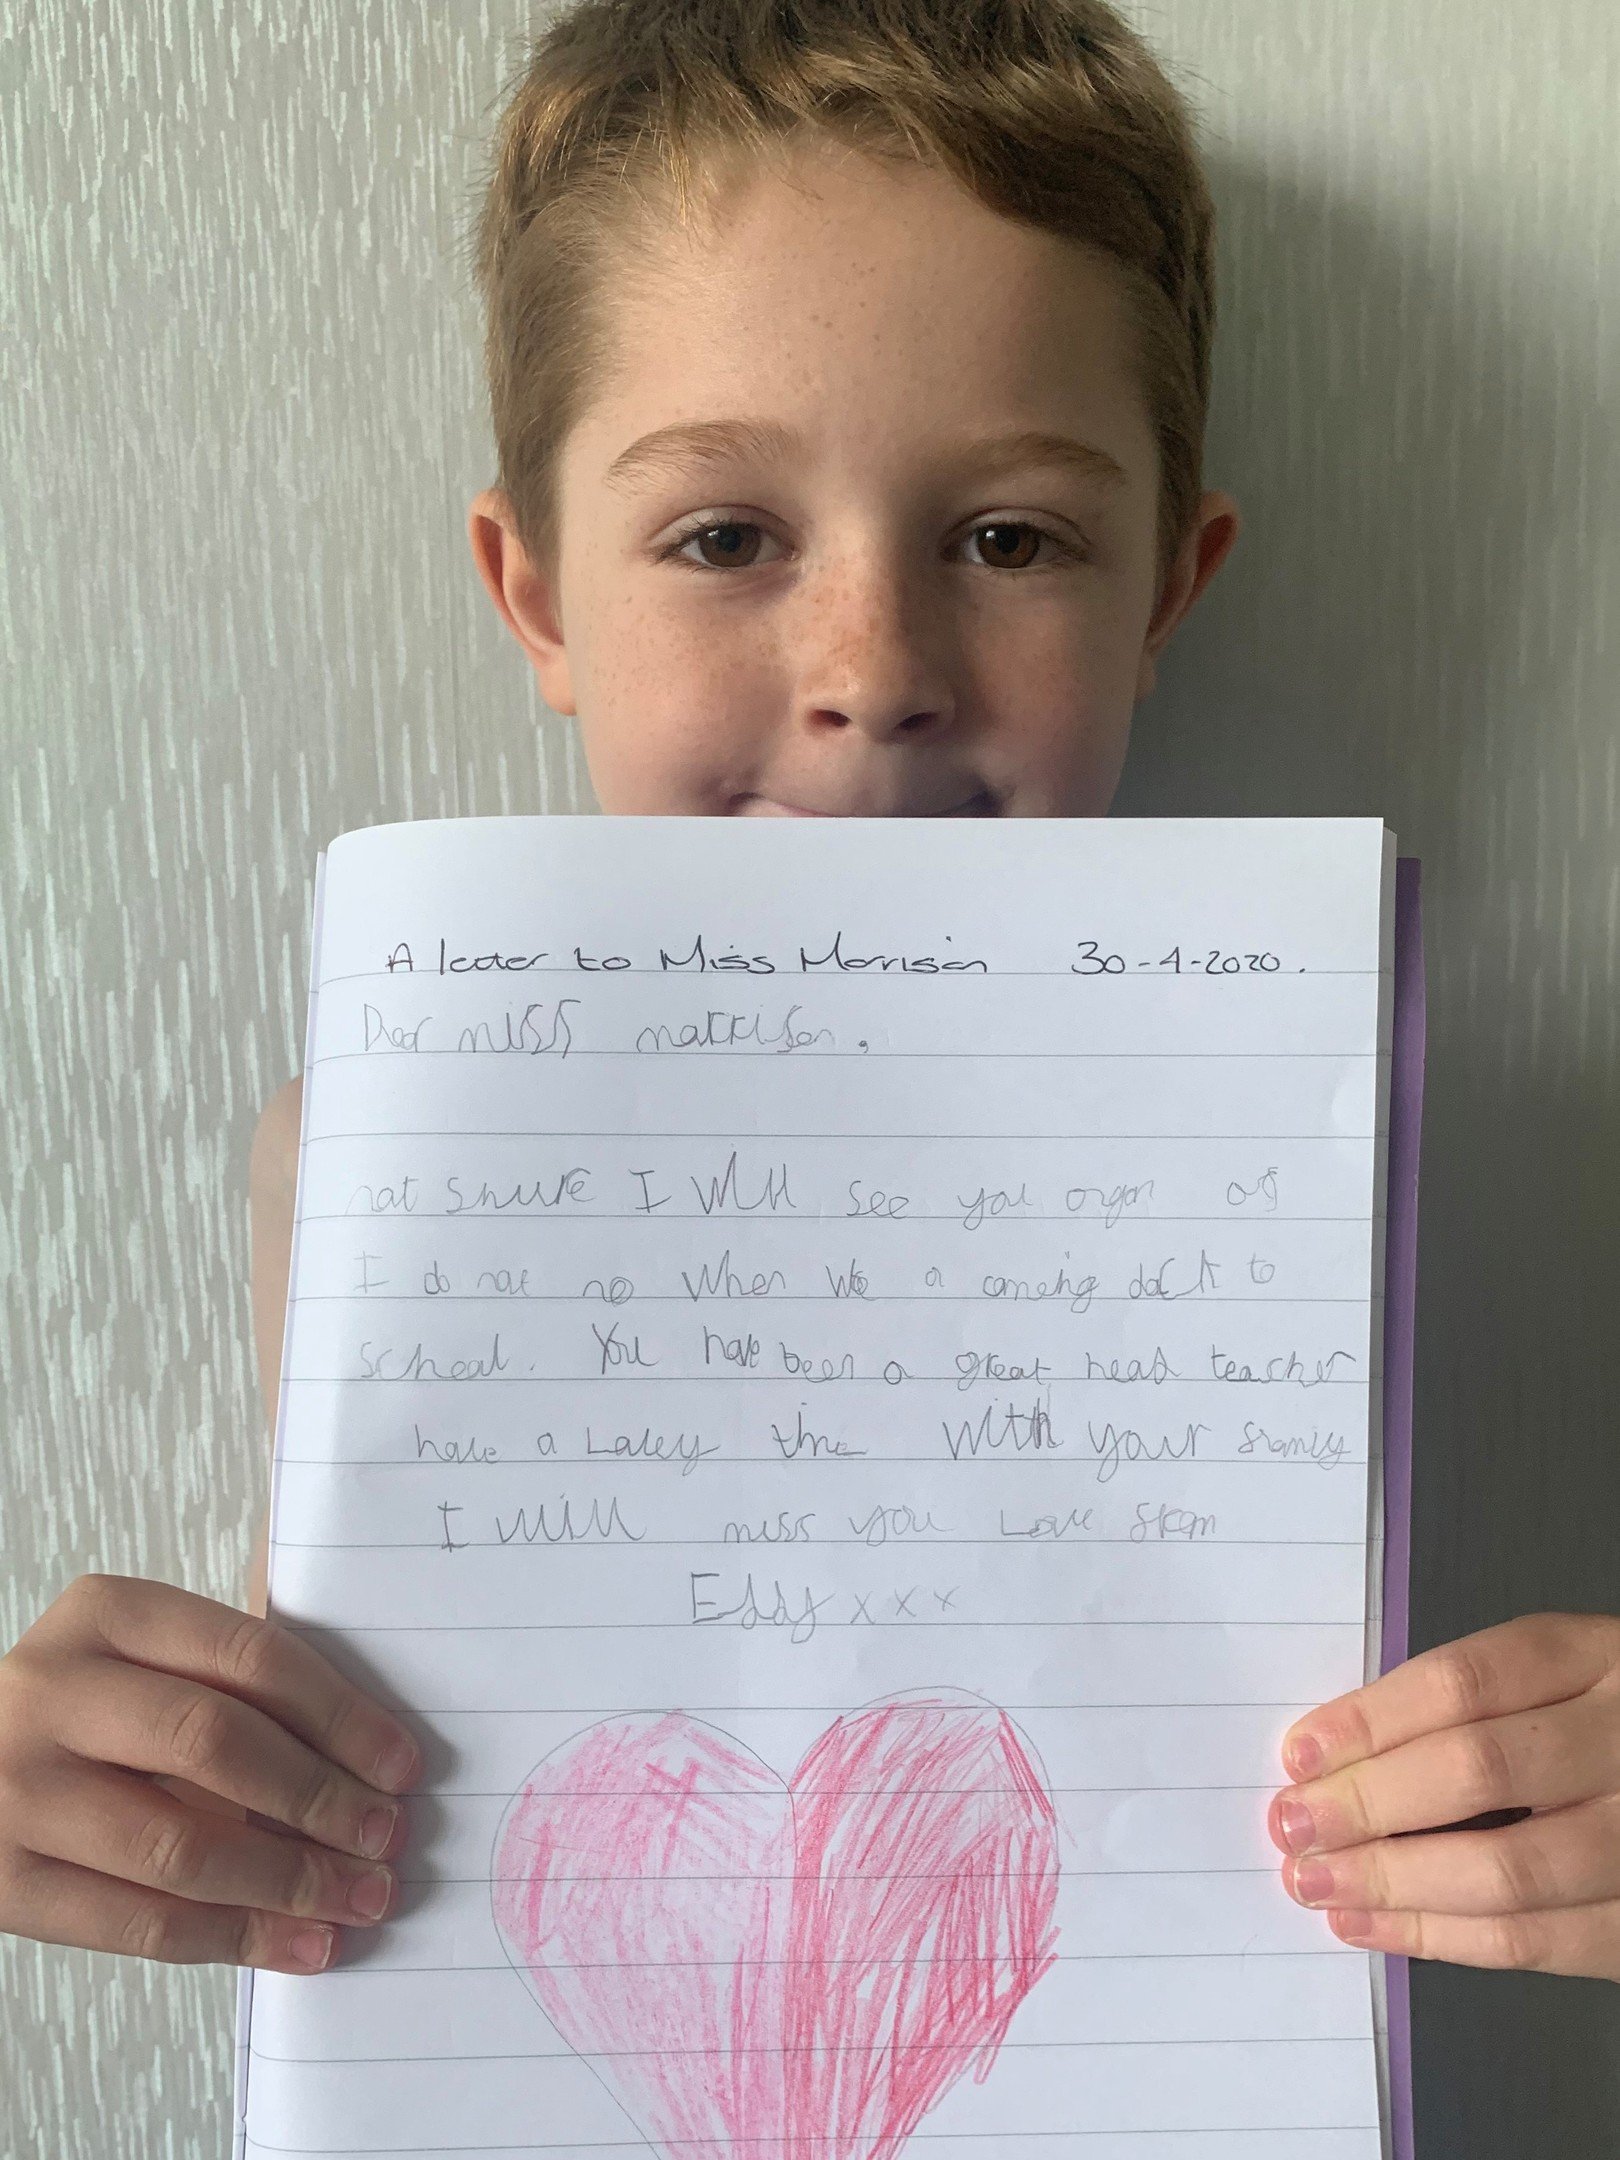 A letter to Miss Morrison 30-4-2020.
Dear miss morrison,
not shure I will see you organ as
I do not no when we a comeing back to
school. You have been a great head teacher
have a Lovley time with your family
I will miss you Love from
Eddy x x x